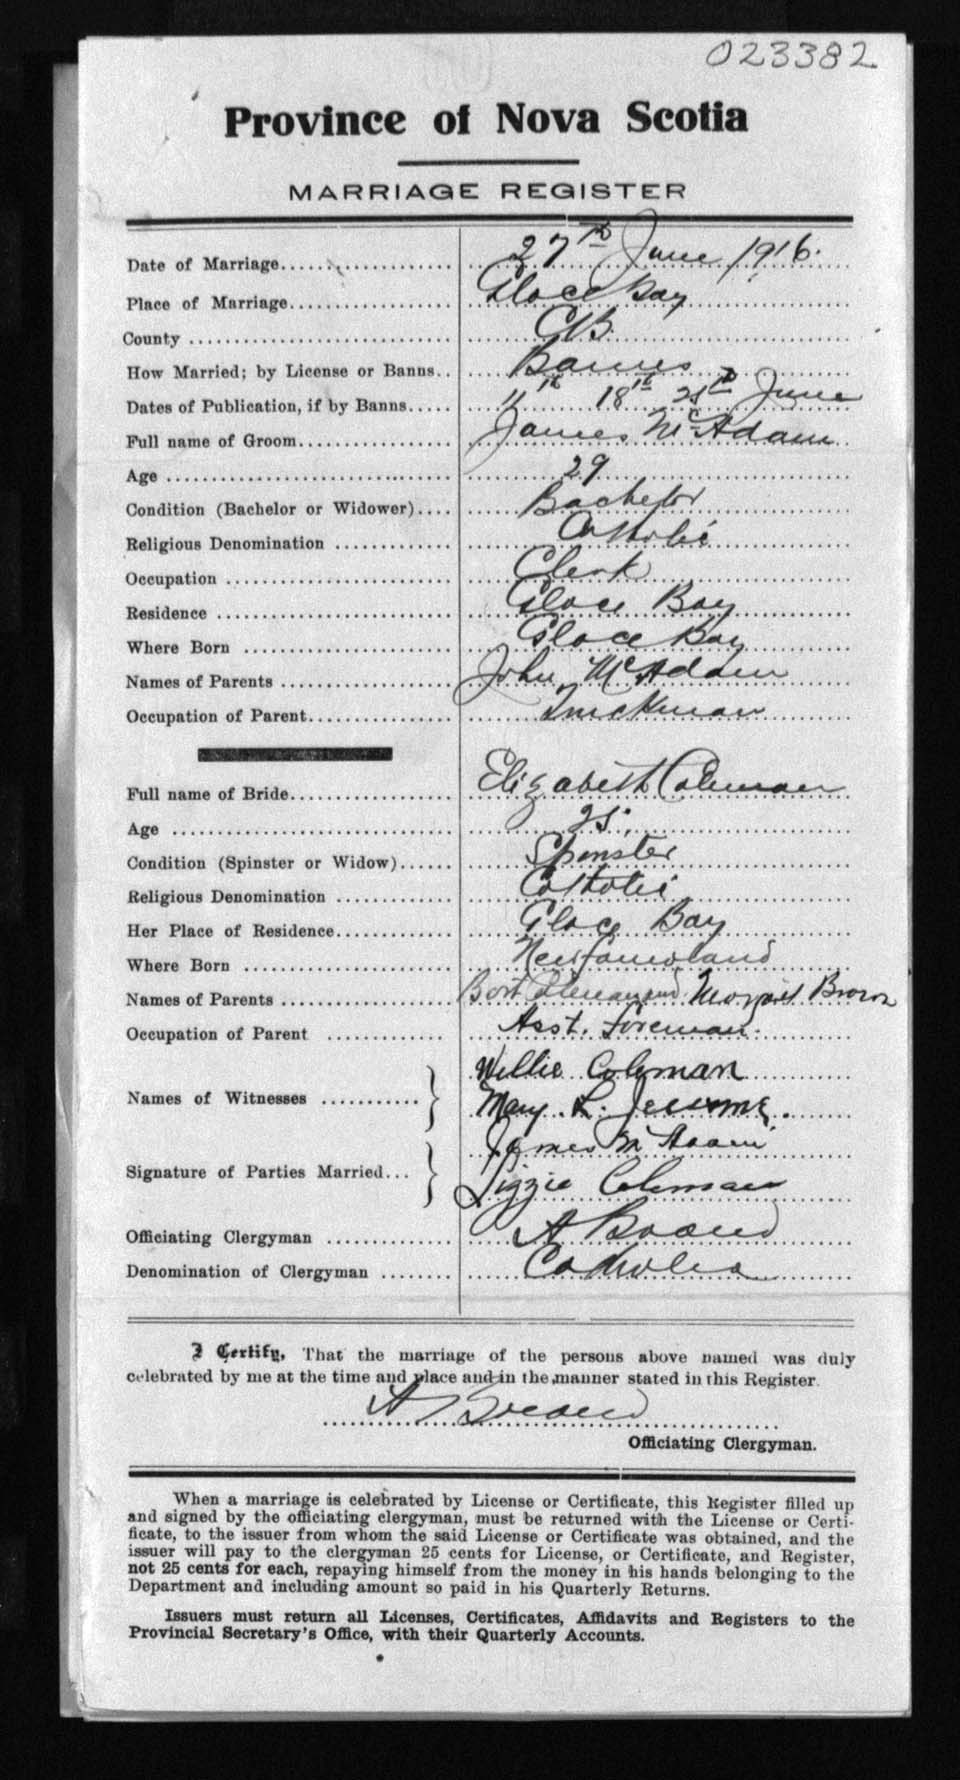 023382
Province of Nova Scotia
MARRIAGE REGISTER
Date of Marriage 27th June 1916.
Place of Marriage Glace Bay
County C B
How Married; by License or Banns Banns
Dates of Publication, if by Banns 11th 18th 25th June
Full name of Groom James McAdam
Age 29
Condition (Bachelor or Widower) Bachelor
Religious Denomination Catholic
Occupation Clerk
Residence Glace Bay
Where Born Glace Bay
Names of Parents John McAdam
Occupation of Parent Truckman
Full name of Bride Elizabeth Coleman
Age 25
Condition (Spinster or Widow) Spinster
Religious Denomination Catholic
Her Place of Residence Glace Bay
Where Born Newfoundland
Names of Parents Bart Coleman and Margaret Brown
Occupation of Parent Asst. foreman.
Names of Witnesses Willie Coleman
Mary L. Jerome.
Signature of Parties Married James McAdam
Lizzie Coleman
Officiating Clergyman A
Denomination of Clergyman Catholic
I Certify, That the marriage of the persons above named was duly
celebrated by me at the time and place and in the manner stated in this Register.
A
Officiating Clergyman.
When a marriage is celebrated by License or Certificate, this Register filled up
and signed by the officiating clergyman, must be returned with the License or Certi-
ficate, to the issuer from whom the said License or Certificate was obtained, and the
issuer will pay to the clergyman 25 cents for License, or Certificate, and Register,
not 25 cents for each, repaying himself from the money in his hands belonging to the
Department and including amount so paid in his Quarterly Returns.
Issuers must return all Licenses, Certificates, Affidavits and Registers to the
Provincial Secretary's Office, with their Quarterly Accounts.